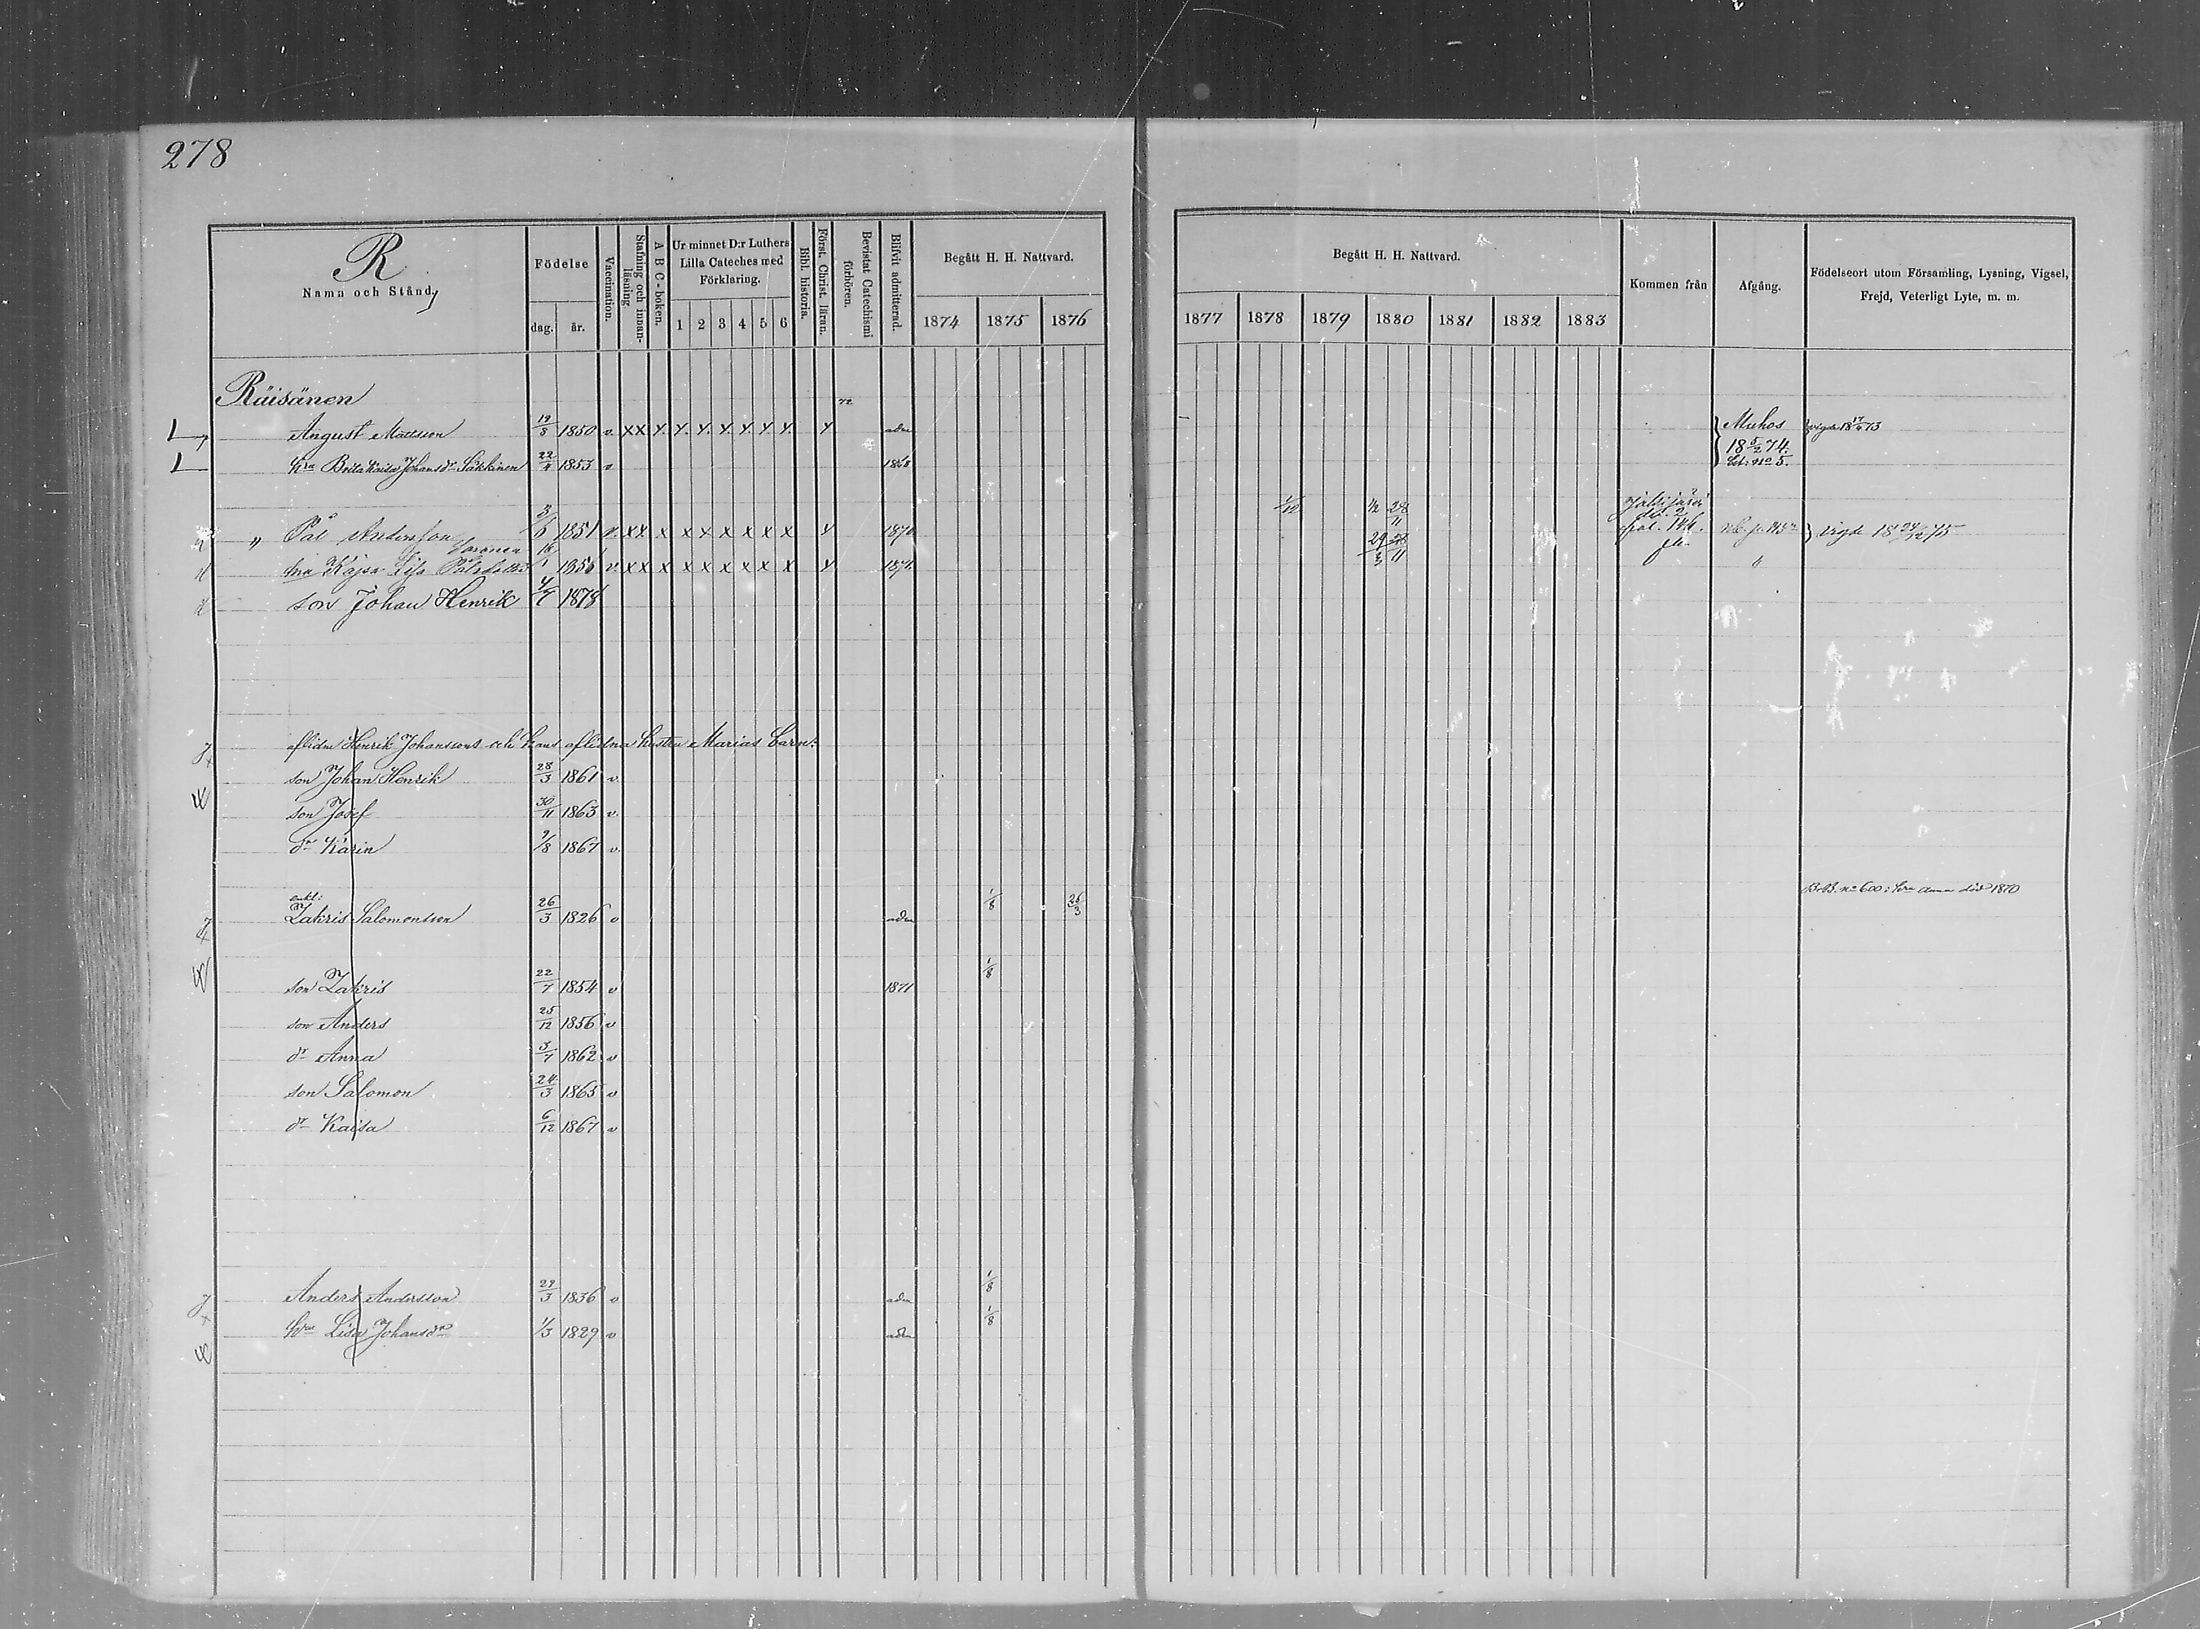 278
R
Namn och Stånd,
Födelse
dag. år.
Vaccination.
Stafning och innanläsning
A B C-boken.
Ur minnet D:r Luthers Lilla Cateches med Förklaring.
1 2 3 4 5 6
Bibl. historia.
Först. Christ. läran.
Bevistat Catechismi förhören.
Blifvit admitterad.
Begått H. H. Nattvard.
1874 1875 1876
Begått H. H. Nattvard.
1877 1878 1879 1880 1881 1882 1883
Kommen från
Afgång.
Födelseort utom Församling, Lysning, Vigsel, Frejd, Veterligt Lyte, m. m.
Räisänen 72
August Mattsson 19/8 1850 v. x x y. y. y. y. y. y. y. y adm Muhos
18 5/2 74.
hru Brita Johansdr 22/ 1853 v 1868 No 5.
1/12 28/11
" Pål Andersson 3/ 1851 v. x x x x x x x x x y 1870 Vigde
hru Kajsa Lisa 1856 v x x x x x x x x x y 29/3 11 "
son Johan Henrik 1878
aflidne Henrik Johanssons och hans aflidna hustru Marias barn:
son Johan Henrik 28/3 1861 v.
son Josef 30/11 1863 v.
dr Karin 9/8 1867 v.
enkl: 1/8 26/3 no 600: hru Anna död 1870
Zakris Salomonsson 26/3 1826 v adm
1/8
son Zakris 22/7 1854 v 1871
son Anders 25/12 1856 v
dr Anna 3/7 1862 v
son Salomon 24/3 1865 v
dr Kaisa 6/12 1867 v
1/8
Anders Andersson 29/3 1836 v adm
1/8
hru Lisa Johansdr 1/3 1829 v adm